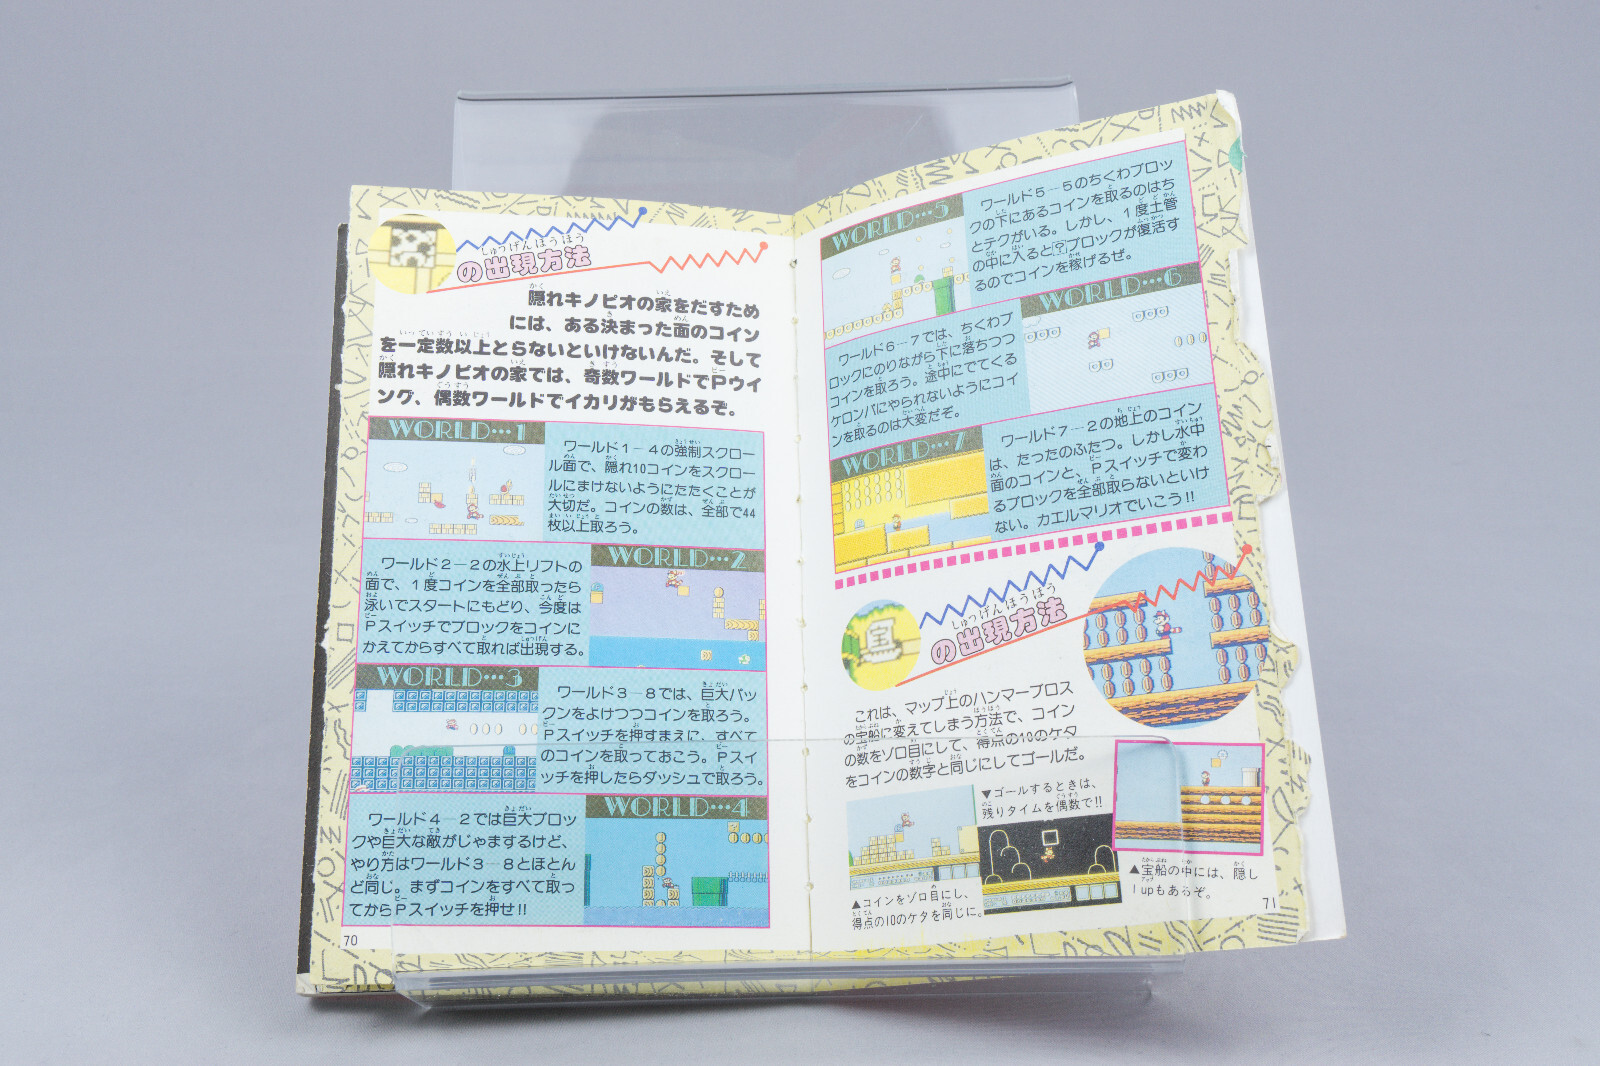 しゅつげんほうほう
の出現方法
隠れキノピオの家をだすため
には、ある決まった面のコイン
を一定数以上とらないといけないんだ。そして
隠れキノピオの家では、奇数ワールドでPウイ
ング、偶数ワールドでイカリがもらえるぞ。
WORLD…1
ワールド1－4の強制スクロー
ル面で、隠れ10コインをスクロー
ルにまけないようにたたくことが
大切だ。コインの数は、全部で44
枚以上取ろう。
ワールド2－2の水上リフトの
面で、1度コインを全部取ったら
泳いでスタートにもどり、今度は
Pスイッチでブロックをコインに
かえてからすべて取れば出現する。
WORLD…2
WORLD…3
ワールド3－8では、巨大バッ
クンをよけつつコインを取ろう。
Pスイッチを押すまえに、すべて
のコインを取っておこう。Pスイ
ッチを押したらダッシュで取ろう。
ワールド4－2では巨大ブロッ
クや巨大な敵がじゃまするけど、
やり方はワールド3－8とほとん
ど同じ。まずコインをすべて取っ
てからPスイッチを押せ!!
WORLD…4
70
WORLD…5
ワールド5－5のちくわブロッ
クの下にあるコインを取るのはち
とテクがいる。しかし、1度土管
の中に入ると?ブロックが復活す
るのでコインを稼げるぜ。
ワールド6－7では、ちくわブ
ロックにのりながら下に落ちつつ
コインを取ろう。途中にでてくる
ケロンパにやられないようにコイ
ンを取るのは大変だぞ。
WORLD…6
WORLD…7
ワールド7－2の地上のコイン
は、たったのふたつ。しかし水中
面のコインと、Pスイッチで変わ
るブロックを全部取らないといけ
ない。カエルマリオでいこう!!
宝
しゅつげんほうほう
の出現方法
これは、マップ上のハンマーブロス
の宝船に変えてしまう方法で、コイン
の数をゾロ目にして、得点の10のケタ
をコインの数字と同じにしてゴールだ。
▲コインをゾロ目にし、
得点の10のケタを同じに。
▼ゴールするときは、
残りタイムを偶数で!!
▲宝船の中には、隠し
1upもあるぞ。
71